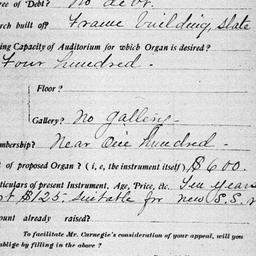 ree of Debt? No debt.
rch built of? Frame building, slate
ing Capacity of Auditorium for which Organ is desired?
Four hundred.
Floor?
Gallery? No gallery.
mbership? Near One hundred.
t of proposed Organ? (i, e, the instrument itself) $600.
ticulars of present Instrument, Age, Price, etc. Ten years
rt $125. suitable for new S.S. r
ount already raised?
To facilitate Mr. Carnegie's consideration of your appeal, will you
oblige by filling in the above?